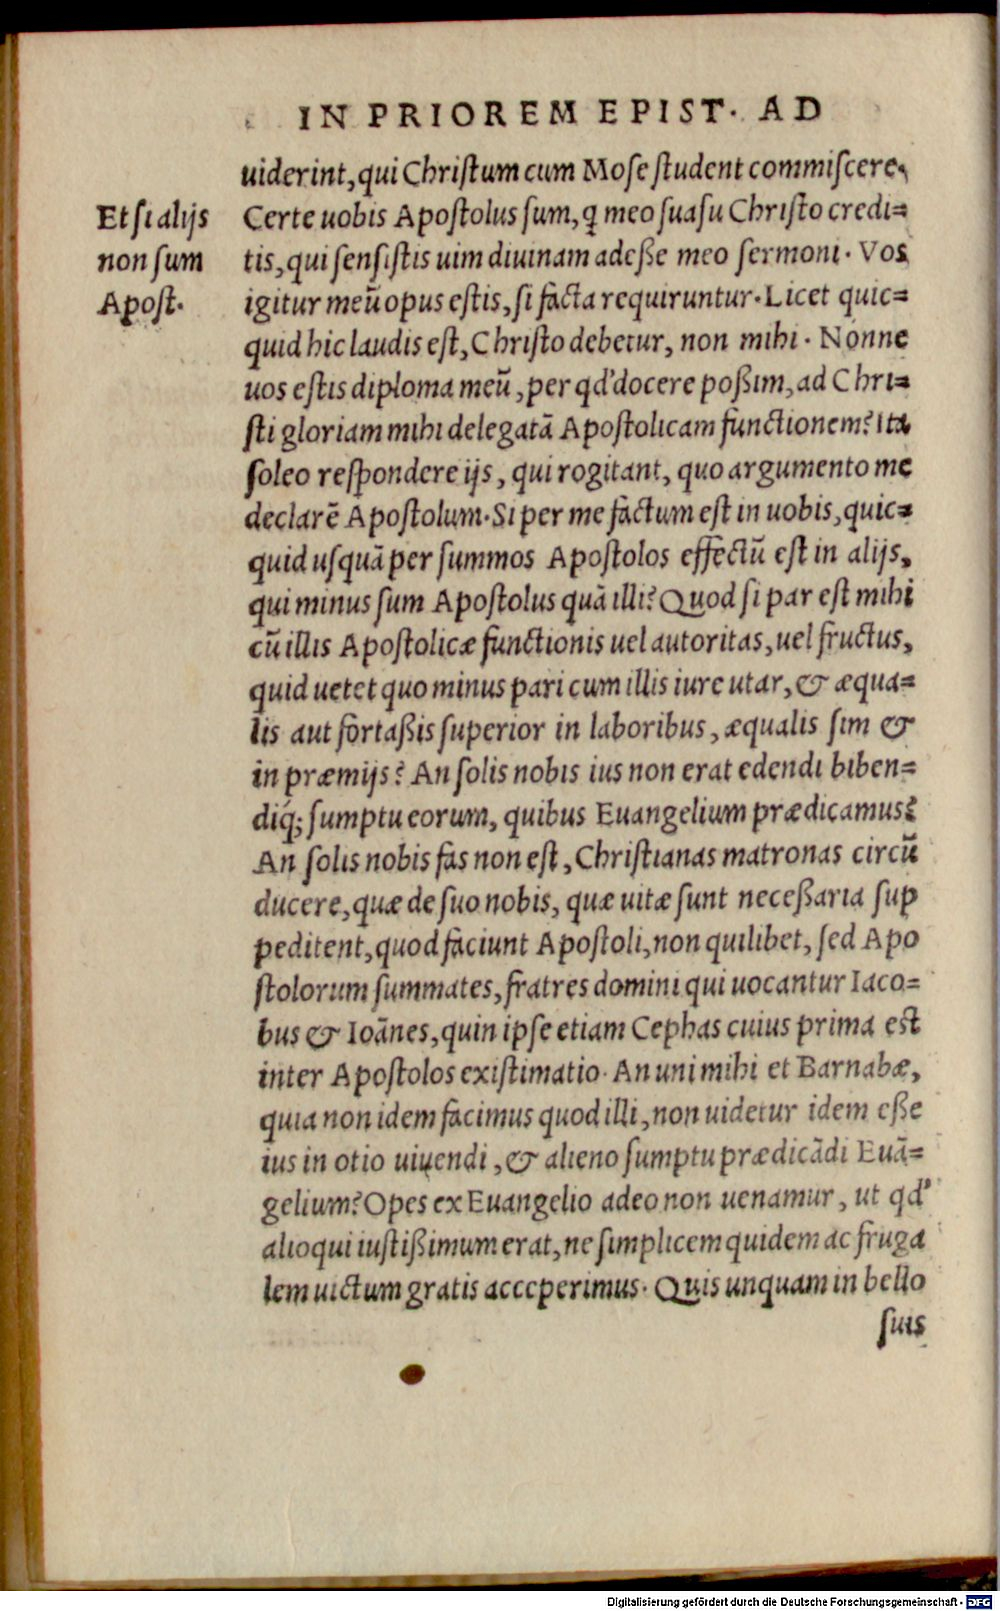 IN PRIOREM EPIST. AD
uiderint, qui Christum cum Mose student commiscere.
Et si alijs
non sum
Apost.
Certe uobis Apostolus sum, q̃ meo suasu Christo credi=
tis, qui sensistis uim diuinam adeße meo sermoni. Vos
igitur meũ opus estis, si facta requiruntur. Licet quic=
quid hic laudis est, Christo debetur, non mihi. Nonne
uos estis diploma meũ, per qd' docere poßim, ad Chri=
sti gloriam mihi delegatã Apostolicam functionem? Ita
soleo respondere ijs, qui rogitant, quo argumento me
declarẽ Apostolum. Si per me factum est in uobis, quic=
quid usquã per summos Apostolos effectũ est in alijs,
qui minus sum Apostolus quã illi? Quod si par est mihi
cũ illis Apostolicæ functionis uel autoritas, uel fructus,
quid uetet quo minus pari cum illis iure utar, & æqua=
lis aut fortaßis superior in laboribus, æqualis sim &
in præmijs? An solis nobis ius non erat edendi biben=
diq́; sumptu eorum, quibus Euangelium prædicamus?
An solis nobis fas non est, Christianas matronas circũ
ducere, quæ de suo nobis, quæ uitæ sunt neceßaria sup
peditent, quod faciunt Apostoli, non quilibet, sed Apo
stolorum summates, fratres domini qui uocantur Iaco=
bus & Ioãnes, quin ipse etiam Cephas cuius prima est
inter Apostolos existimatio. An uni mihi et Barnabæ,
quia non idem facimus quod illi, non uidetur idem eße
ius in otio uiuendi, & alieno sumptu prædicãdi Euã=
gelium? Opes ex Euangelio adeo non uenamur, ut qd'
alioqui iustißimum erat, ne simplicem quidem ac fruga
lem uictum gratis acceperimus. Quis unquam in bello
suis
Digitalisierung gefördert durch die Deutsche Forschungsgemeinschaft - DFG